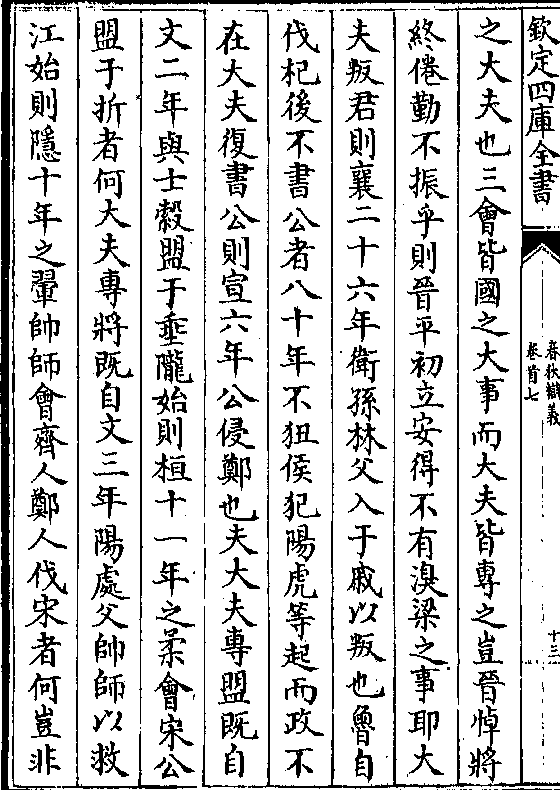 欽定四庫全書
春秋辯義
卷首七
十三
之大夫也三會皆國之大事而大夫皆專之豈晉悼將
終倦勤不振乎則晉平初立安得不有湨梁之事耶大
夫叛君則襄二十六年衛孫林父入于戚以叛也魯自
伐杞後不書公者八十年不狃侯犯陽虎等起而政不
在大夫復書公則宣六年公侵鄭也夫大夫專盟既自
文二年與士縠盟于垂隴始則桓十一年之柔會宋公
盟于折者何大夫專將既自文三年陽處父帥師以救
江始則隱十年之翬帥師會齊人鄭人伐宋者何豈非